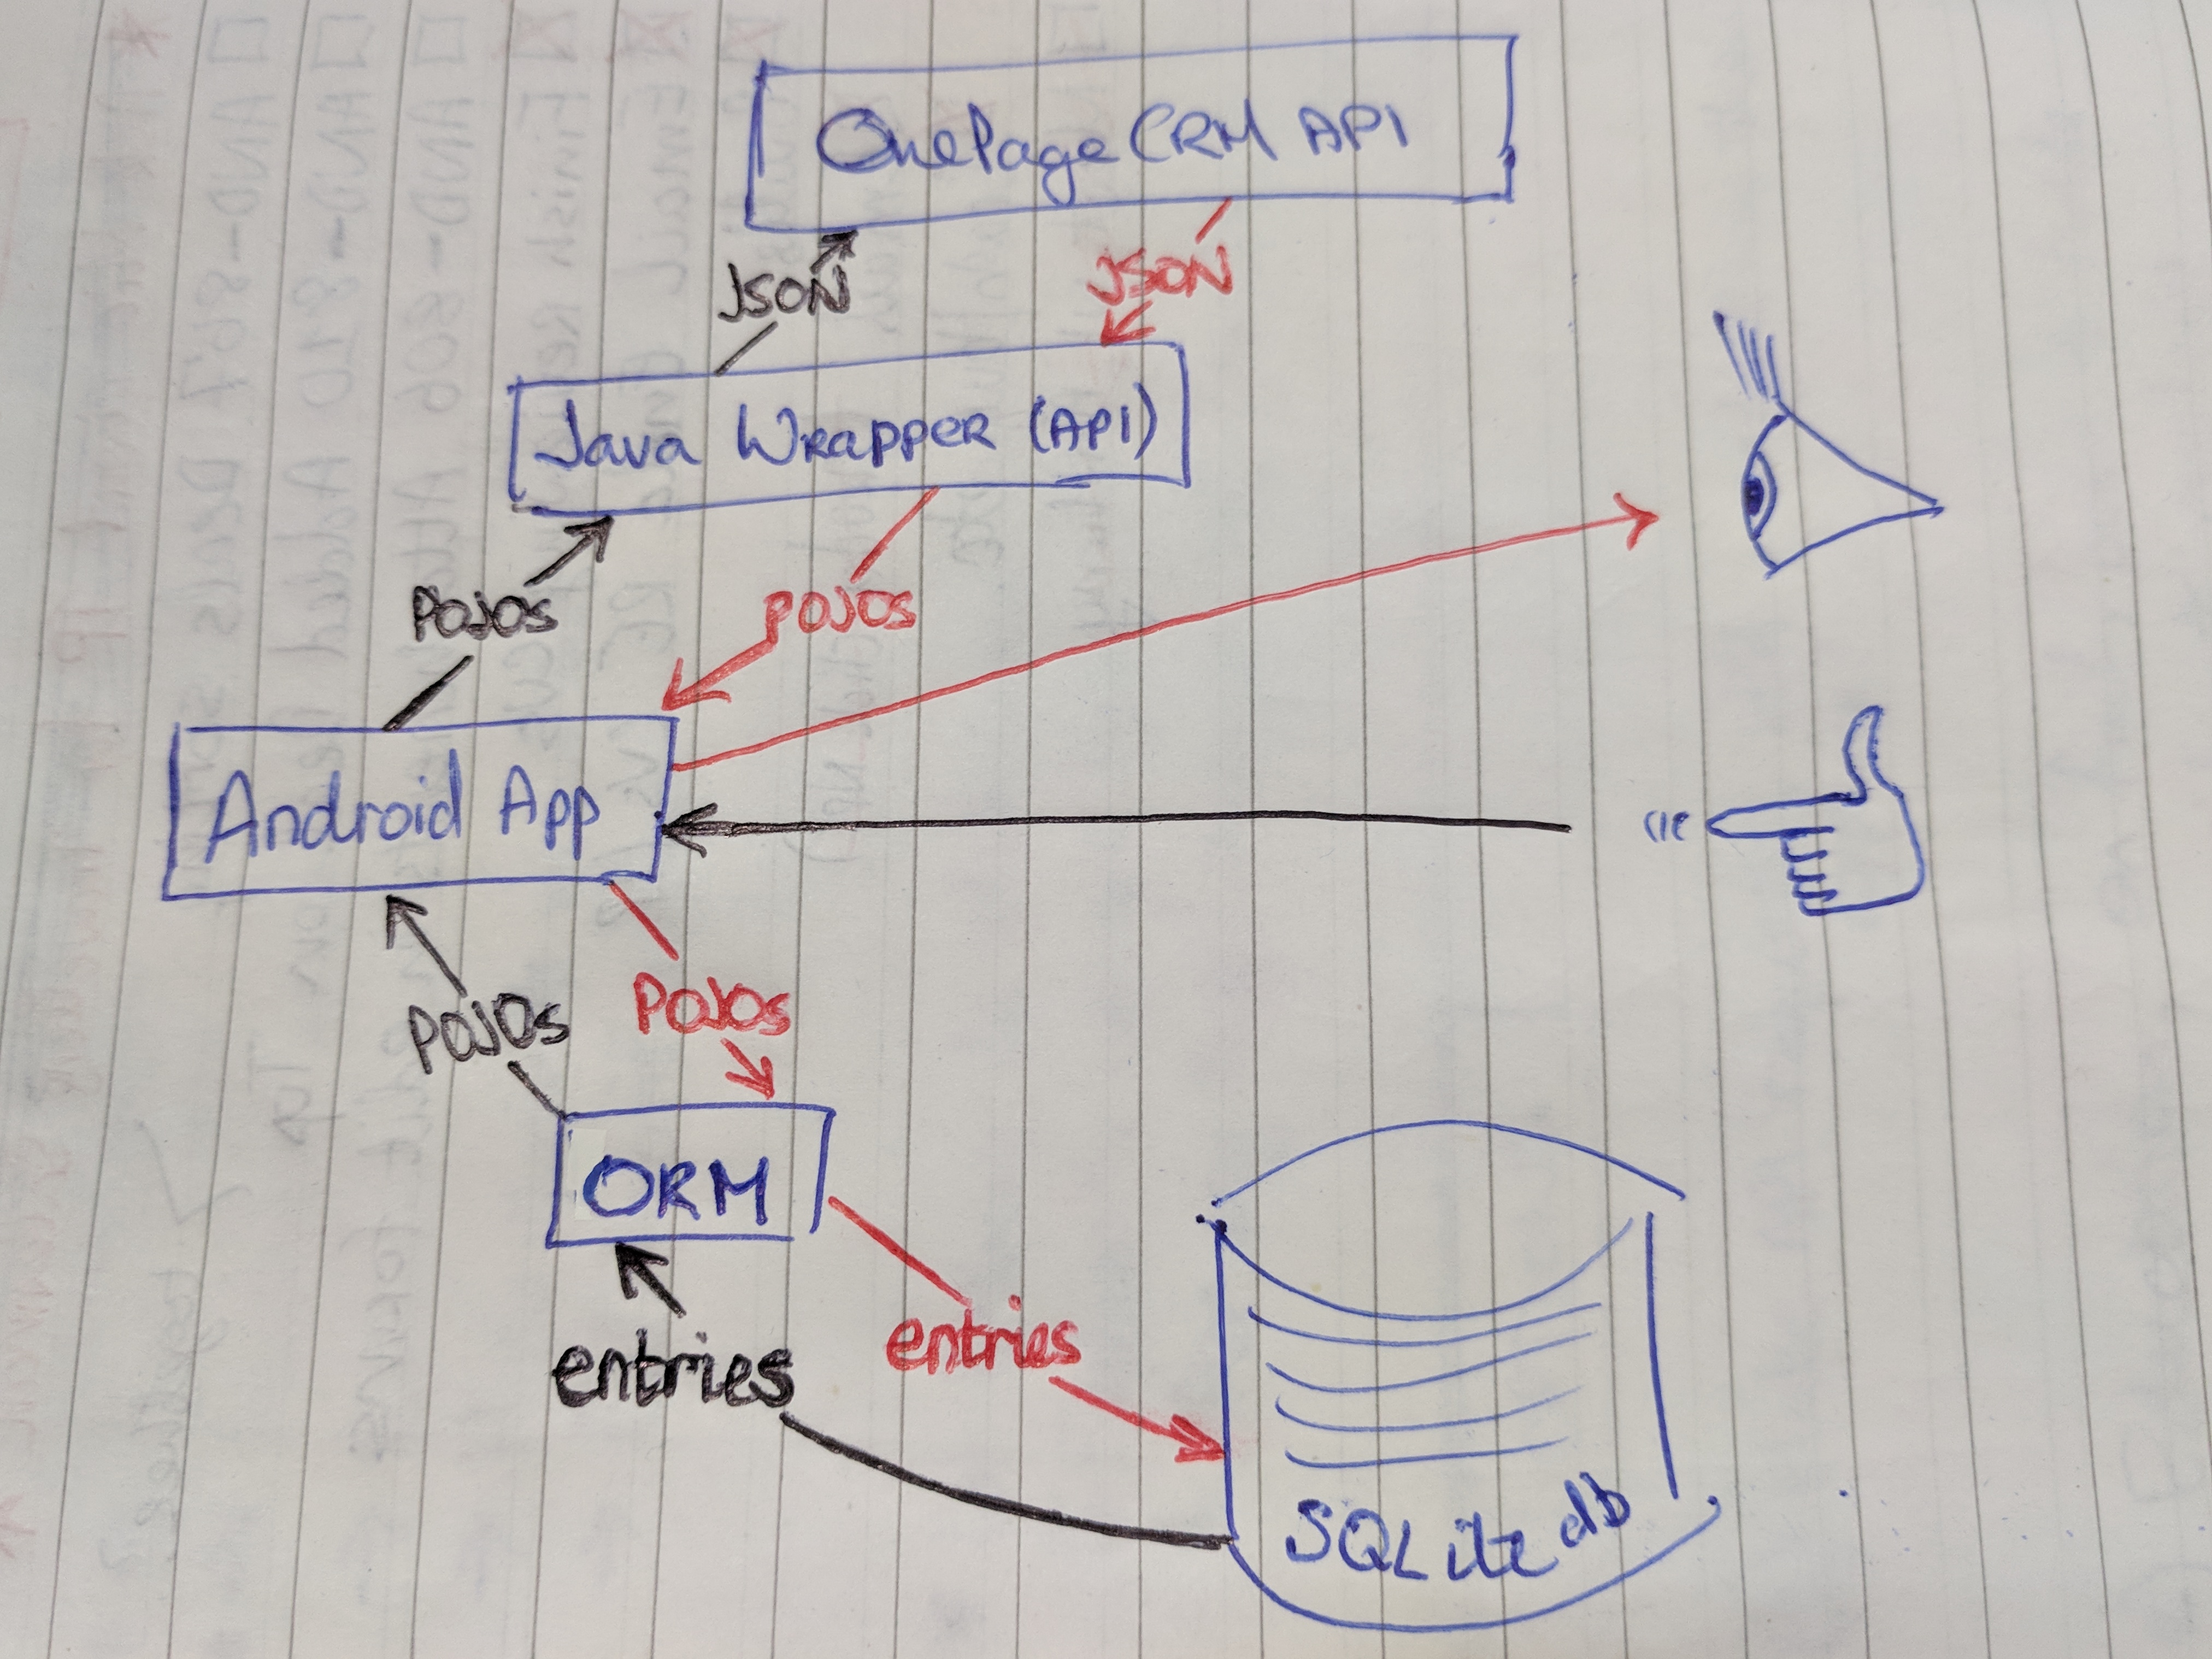 OnePageCRM API
JSON
JSON
Java Wrapper (API)
POJOs
POJOs
Android App
POJOs
POJOs
ORM
entries
entries
SQLite db